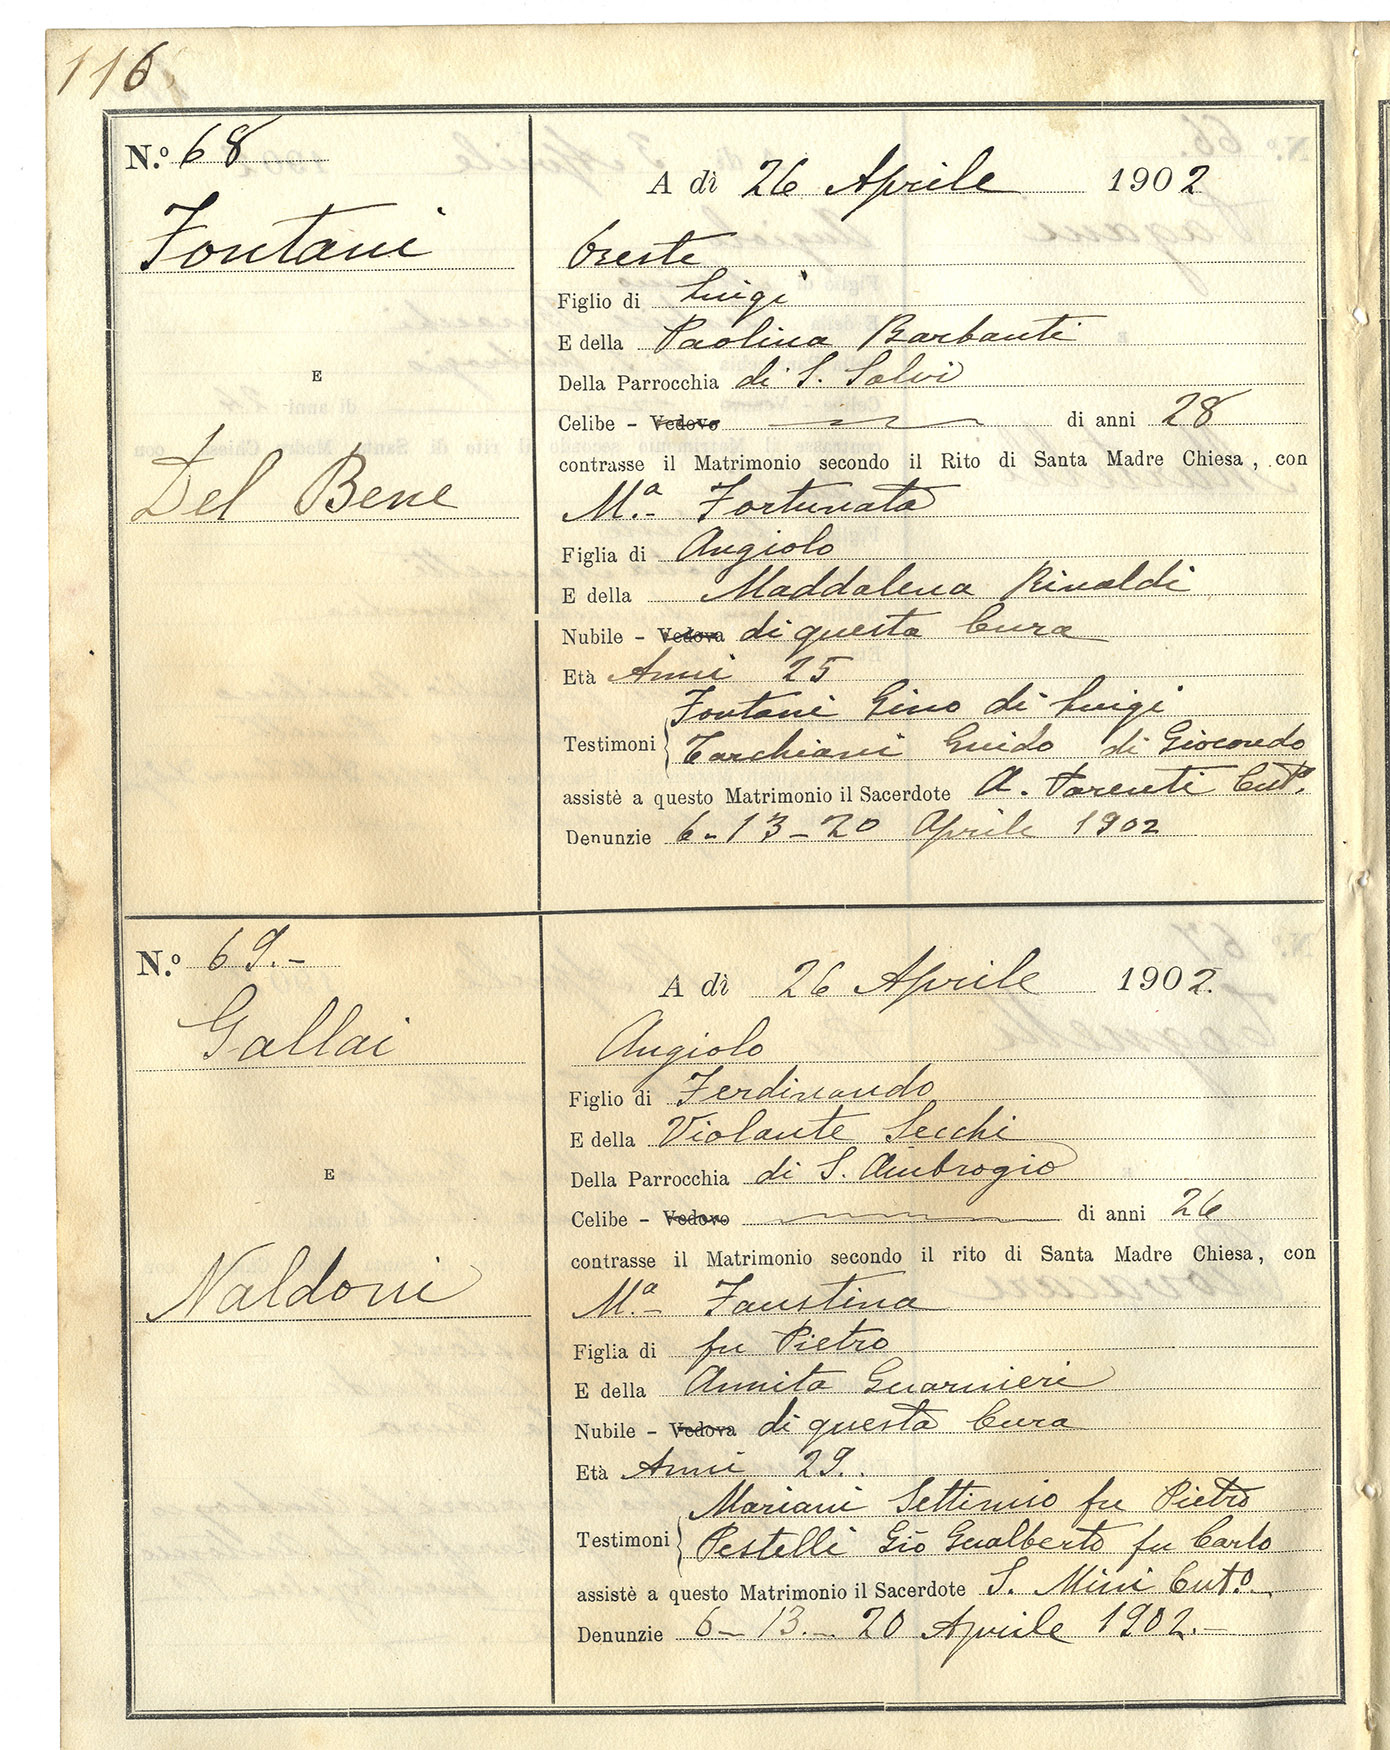 116
N.º 68
A dì 26 Aprile 1902
Fontani
Oreste
Figlio di Luigi
E della Paolina Barbanti
E
Della Parrocchia di S. Salvi
Celibe - Vedovo di anni 28
contrasse il Matrimonio secondo il Rito di Santa Madre Chiesa, con
Del Bene
M.a Fortunata
Figlia di Angiolo
E della Maddalena Rinaldi
Nubile - Vedova di questa Cura
Età Anni 25
Fontani Gino di Luigi
Testimoni
Tarchiani Guido di Giocondo
assistè a questo Matrimonio il Sacerdote A. Parenti Cuto.
Denunzie 6-13-20 Aprile 1902
N.º 69.-
A dì 26 Aprile 1902.
Gallai
Angiolo
Figlio di Ferdinando
E della Violante Secchi
E
Della Parrocchia di S. Ambrogio
Celibe - Vedovo di anni 26
contrasse il Matrimonio secondo il rito di Santa Madre Chiesa, con
Naldoni
M.a Faustina
Figlia di fu Pietro
E della Annita Guarnieri
Nubile - Vedova di questa Cura
Età Anni 29.
Mariani Settimio fu Pietro
Testimoni
Pestelli Gio Gualberto fu Carlo
assistè a questo Matrimonio il Sacerdote S. Mini Cuto.
Denunzie 6-13.-20 Aprile 1902.-